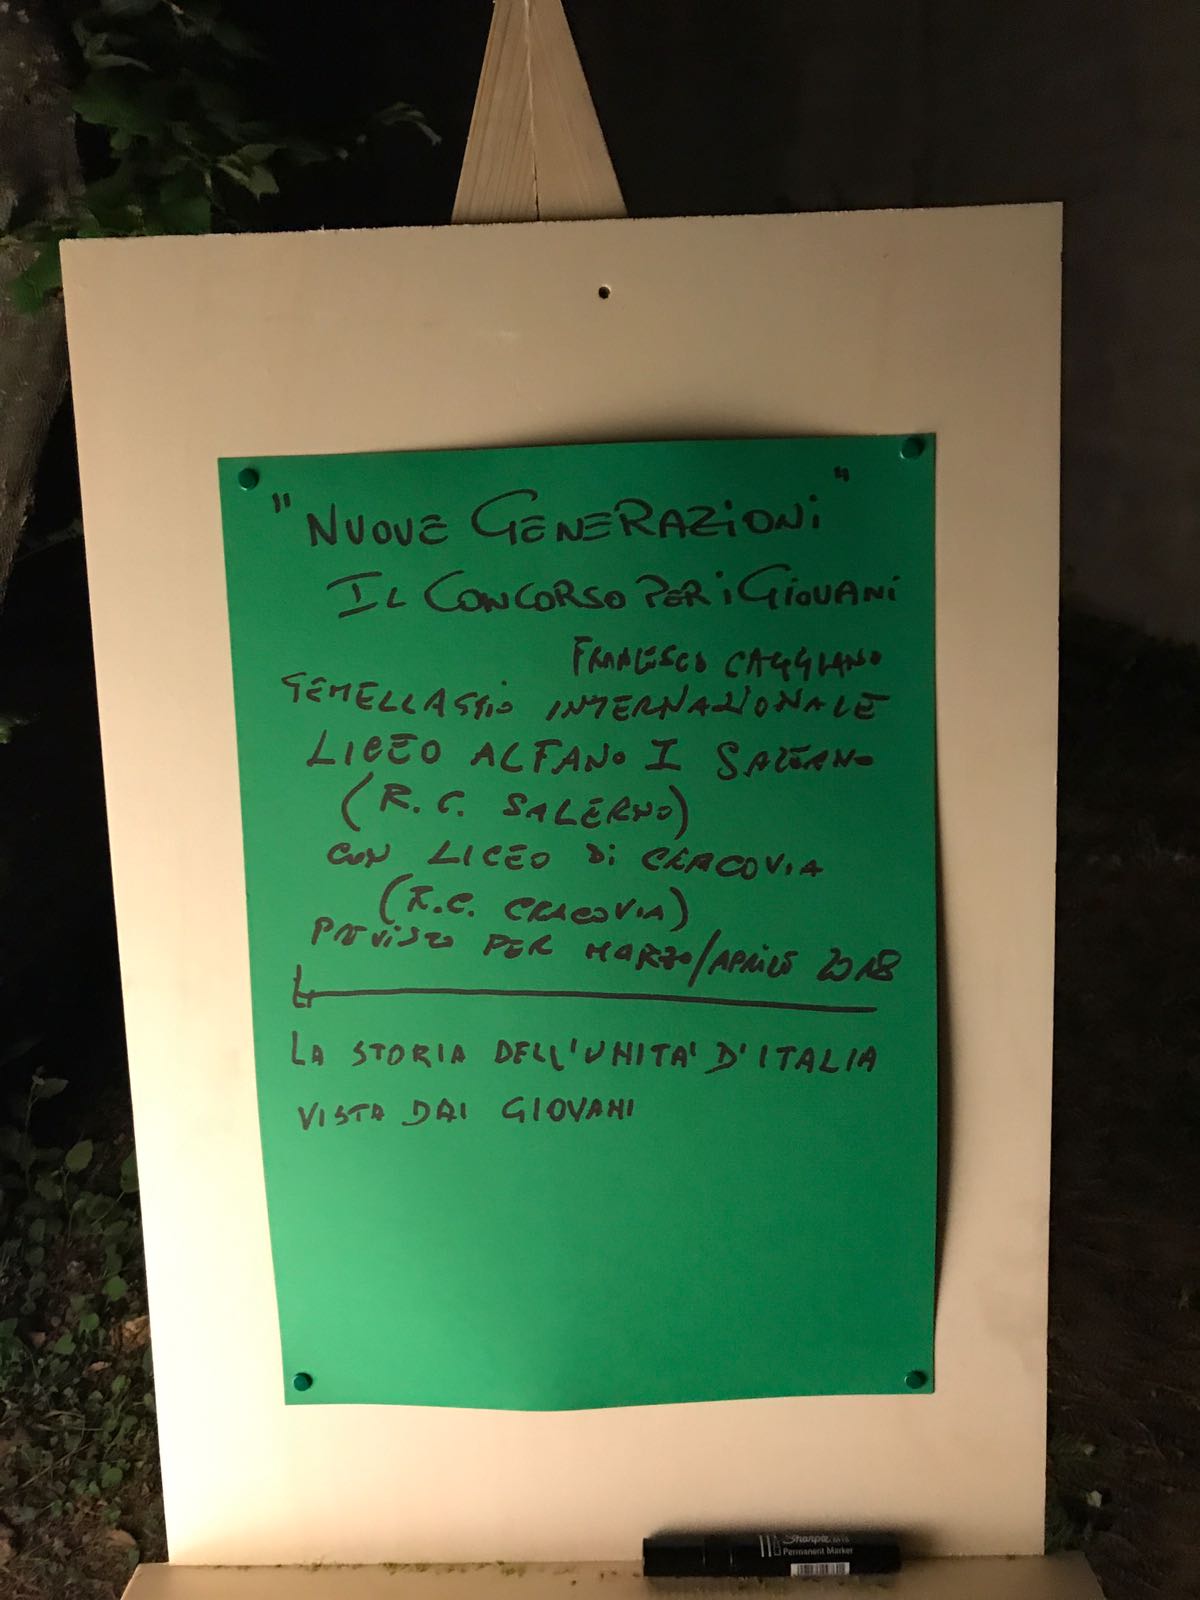 "NUOVE GENERAZIONI"
IL CONCORSO PER i GIOVANI
FRANCESCO CAGGIANO
GEMELLAGGIO INTERNAZIONALE
LICEO ALFANO I SALERNO
(R.C. SALERNO)
CON LICEO Di CRACOVIA
(R.C. CRACOVIA)
PREVISTO PER MARZO/APRILE 2018
LA STORIA DELL'UNITA' D'ITALIA
VISTA DAI GIOVANI
Sharpie
Permanent Marker